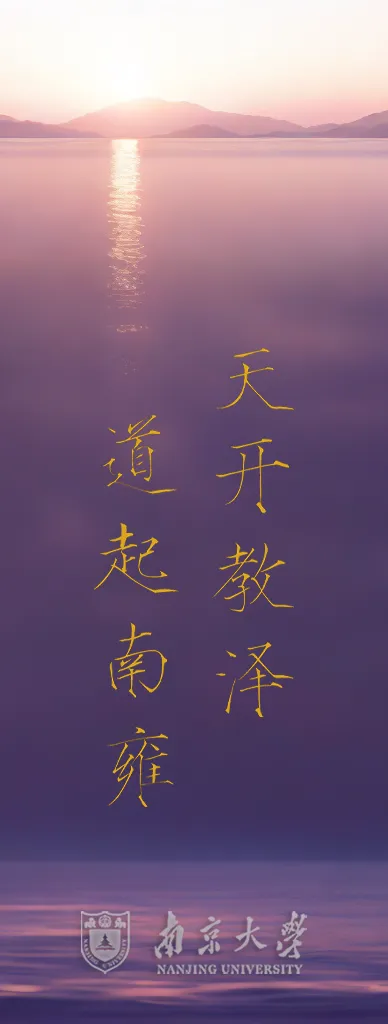 天开教泽
道起南雍
南京大學
NANJING UNIVERSITY